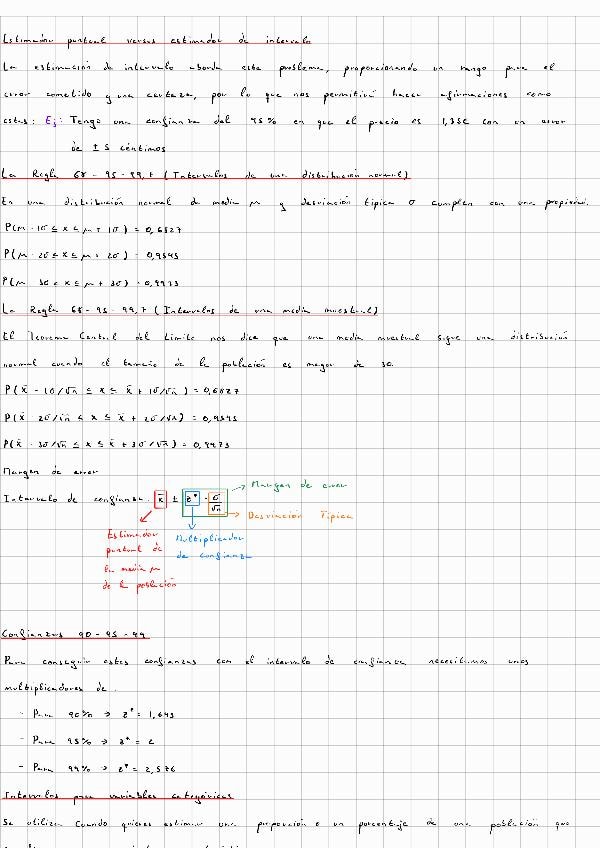 Estimador puntual versus estimador de intervalo
La estimación de intervalo aborda este problema, proporcionando un rango para el
error cometido y una certeza, por lo que nos permitirá hacer afirmaciones como
estas: Ej: Tengo una confianza del 95% en que el precio es 1,35€ con un error
de ± 5 céntimos
La Regla 68-95-99,7 (Intervalos de una distribución normal)
En una distribución normal de media μ y desviación típica σ cumplen con una propiedad.
P(μ - 1σ ≤ x ≤ μ + 1σ) = 0,6827
P(μ - 2σ ≤ x ≤ μ + 2σ) = 0,9545
P(μ - 3σ < x ≤ μ + 3σ) = 0,9973
La Regla 68-95-99,7 (Intervalos de una media muestral)
El Teorema Central del Límite nos dice que una media muestral sigue una distribución
normal cuando el tamaño de la población es mayor de 30.
P(x̄ - 1σ/√n ≤ x ≤ x̄ + 1σ/√n) = 0,6827
P(x̄ - 2σ/√n ≤ x ≤ x̄ + 2σ/√n) = 0,9545
P(x̄ - 3σ/√n ≤ x ≤ x̄ + 3σ/√n) = 0,9973
Margen de error
Intervalo de confianza: x̄ ± z* · σ/√n
Margen de error
Desviación Típica
Estimador
puntual de
la media μ
de la población
Multiplicador
de confianza
Confianzas 90-95-99
Para conseguir estas confianzas con el intervalo de confianza necesitamos unos
multiplicadores de:
- Para 90% → z* = 1,645
- Para 95% → z* = 2
- Para 99% → z* = 2,576
Intervalos para variables categóricas
Se utiliza cuando quieres estimar una proporción o un porcentaje de una población que